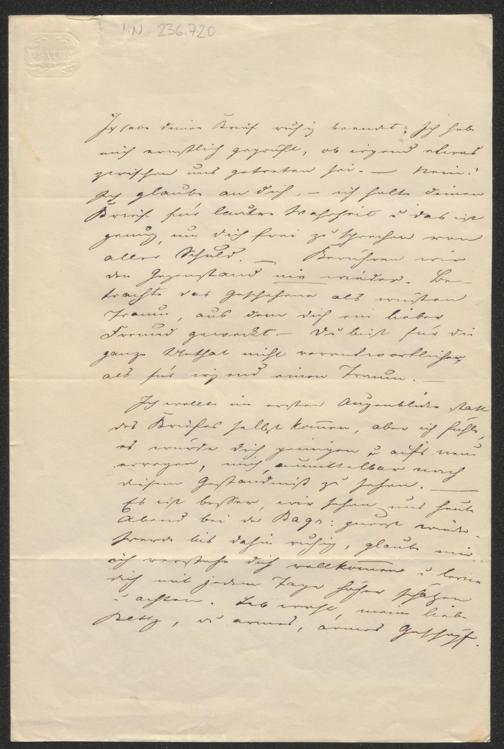 I.N. 236.720
Ich habe deinen Brief ruhig beendet; Ich habe
mich ernstlich geprüft, ob irgend etwas
zwischen uns getreten sei. — Nein!
Ich glaube an dich, — ich halte deinen
Brief für lautere Wahrheit u das ist
genug, um dich frei zu sprechen von
aller Schuld. — Berühren wir
den Gegenstand nie wieder. Be-
trachte das Geschehene als wüsten
Traum, aus dem dich ein lieber
Freund geweckt — Du bist für die
ganze Unthat nicht verantwortlicher
als für irgend einen Traum. —
Ich wollte im ersten Augenblicke statt
des Briefes selbst kommen, aber ich fühle,
es würde dich peinigen u aufs neue
erregen, mich unmittelbar nach
diesem Geständniß zu sehen. —
Es ist besser, wir sehen uns heute
Abend bei der
werde bis dahin ruhig, glaube mir
ich verstehe dich vollkommen u lerne
dich mit jedem Tage höher schätzen
u achten. Leb wohl, meine liebe
du armes, armes Geschöpf.